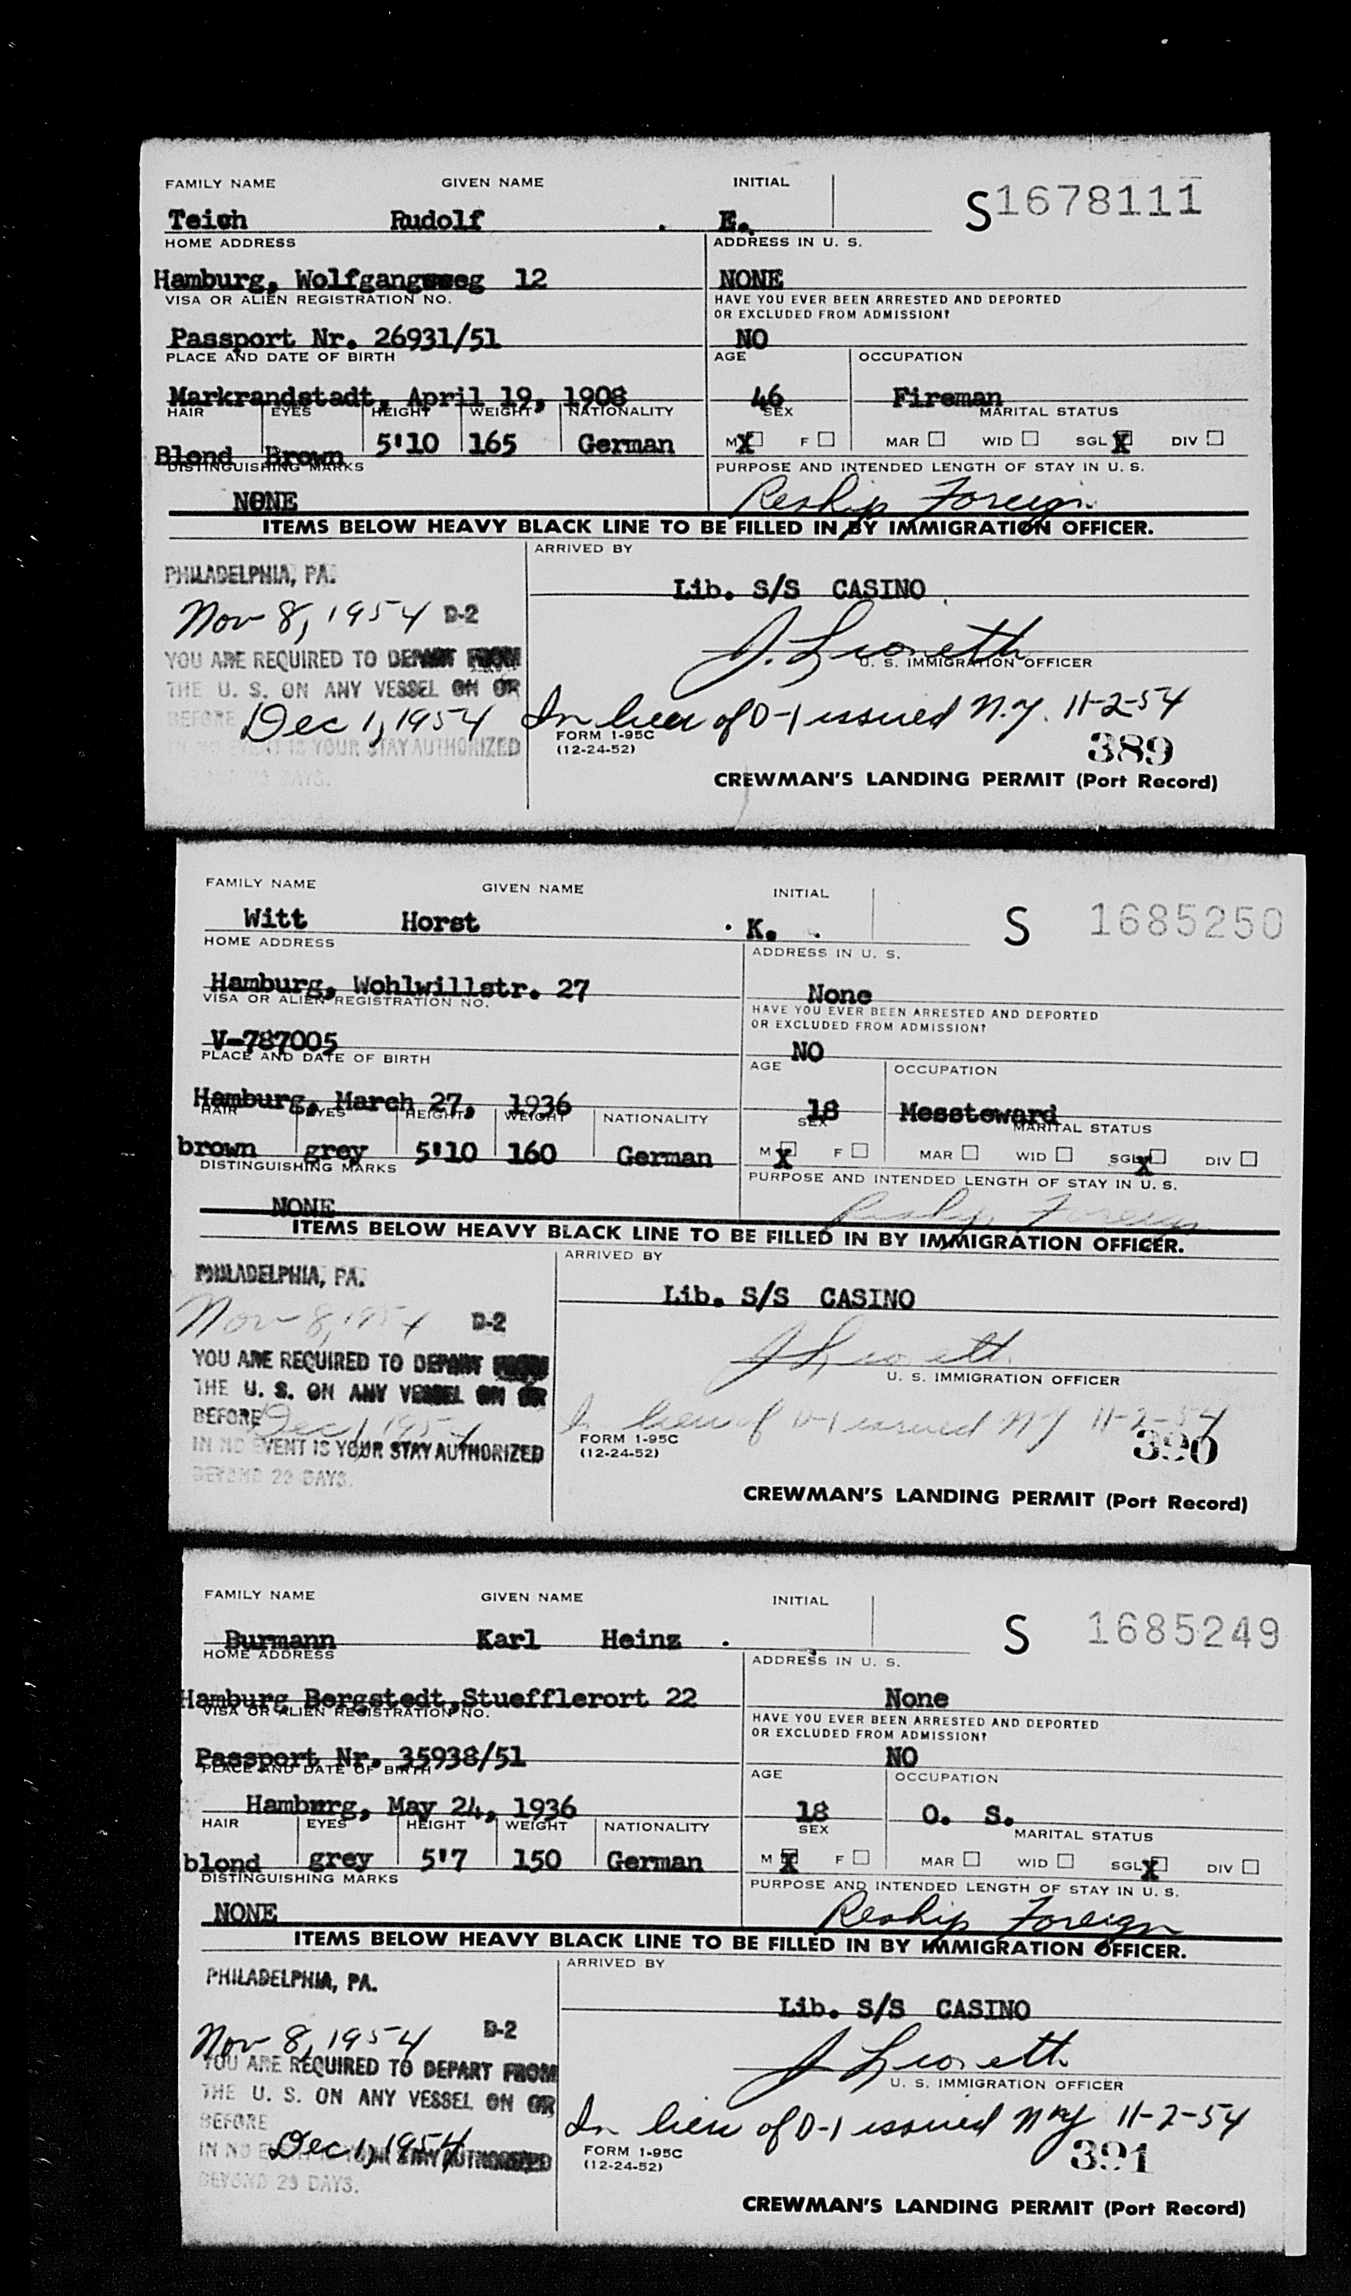 FAMILY NAME GIVEN NAME INITIAL
S1678111
Teich Rudolf . E.
HOME ADDRESS ADDRESS IN U. S.
Hamburg, Wolfgangsweg 12 NONE
VISA OR ALIEN REGISTRATION NO. HAVE YOU EVER BEEN ARRESTED AND DEPORTED
OR EXCLUDED FROM ADMISSION?
Passport Nr. 26931/51 NO
PLACE AND DATE OF BIRTH AGE OCCUPATION
Markrandstadt, April 19, 1908 46 Fireman
HAIR EYES HEIGHT WEIGHT NATIONALITY SEX MARITAL STATUS
Blond Brown 5'10 165 German M X F MAR WID SGL X DIV
DISTINGUISHING MARKS PURPOSE AND INTENDED LENGTH OF STAY IN U. S.
NONE Reship Foreign
ITEMS BELOW HEAVY BLACK LINE TO BE FILLED IN BY IMMIGRATION OFFICER.
ARRIVED BY
PHILADELPHIA, PA. Lib. S/S CASINO
Nov 8, 1954 D-2
YOU ARE REQUIRED TO DEPART FROM U. S. IMMIGRATION OFFICER
THE U. S. ON ANY VESSEL ON OR
BEFORE Dec 1, 1954 In lieu of D-1 issued N.Y. 11-2-54
FORM 1-95C
IN NO EVENT IS YOUR STAY AUTHORIZED (12-24-52) 389
DAYS.
CREWMAN'S LANDING PERMIT (Port Record)
FAMILY NAME GIVEN NAME INITIAL
S 1685250
Witt Horst . K. .
HOME ADDRESS ADDRESS IN U. S.
Hamburg, Wohlwillstr. 27 None
VISA OR ALIEN REGISTRATION NO. HAVE YOU EVER BEEN ARRESTED AND DEPORTED
OR EXCLUDED FROM ADMISSION?
V-787005 NO
PLACE AND DATE OF BIRTH AGE OCCUPATION
Hamburg, March 27, 1936 18 Messteward
HAIR EYES HEIGHT WEIGHT NATIONALITY SEX MARITAL STATUS
brown grey 5'10 160 German M X F MAR WID SGL X DIV
DISTINGUISHING MARKS PURPOSE AND INTENDED LENGTH OF STAY IN U. S.
NONE Reship Foreign
ITEMS BELOW HEAVY BLACK LINE TO BE FILLED IN BY IMMIGRATION OFFICER.
ARRIVED BY
PHILADELPHIA, PA. Lib. S/S CASINO
Nov 8, 1954 D-2
YOU ARE REQUIRED TO DEPART FROM U. S. IMMIGRATION OFFICER
THE U. S. ON ANY VESSEL ON OR
BEFORE Dec 1, 1954 In lieu of D-1 issued NY 11-2-54
FORM 1-95C
IN NO EVENT IS YOUR STAY AUTHORIZED (12-24-52) 390
BEYOND 29 DAYS.
CREWMAN'S LANDING PERMIT (Port Record)
FAMILY NAME GIVEN NAME INITIAL
S 1685249
Burmann Karl Heinz .
HOME ADDRESS ADDRESS IN U. S.
Hamburg Bergstedt,Stuefflerort 22 None
VISA OR ALIEN REGISTRATION NO. HAVE YOU EVER BEEN ARRESTED AND DEPORTED
OR EXCLUDED FROM ADMISSION?
Passport Nr. 35938/51 NO
PLACE AND DATE OF BIRTH AGE OCCUPATION
Hamburg, May 24, 1936 18 O. S.
HAIR EYES HEIGHT WEIGHT NATIONALITY SEX MARITAL STATUS
blond grey 5'7 150 German M X F MAR WID SGL X DIV
DISTINGUISHING MARKS PURPOSE AND INTENDED LENGTH OF STAY IN U. S.
NONE Reship Foreign
ITEMS BELOW HEAVY BLACK LINE TO BE FILLED IN BY IMMIGRATION OFFICER.
ARRIVED BY
PHILADELPHIA, PA. Lib. S/S CASINO
Nov 8, 1954 D-2
YOU ARE REQUIRED TO DEPART FROM U. S. IMMIGRATION OFFICER
THE U. S. ON ANY VESSEL ON OR
BEFORE In lieu of D-1 issued NY 11-2-54
Dec 1, 1954 FORM 1-95C
IN NO EVENT IS YOUR STAY AUTHORIZED (12-24-52) 391
BEYOND 29 DAYS.
CREWMAN'S LANDING PERMIT (Port Record)